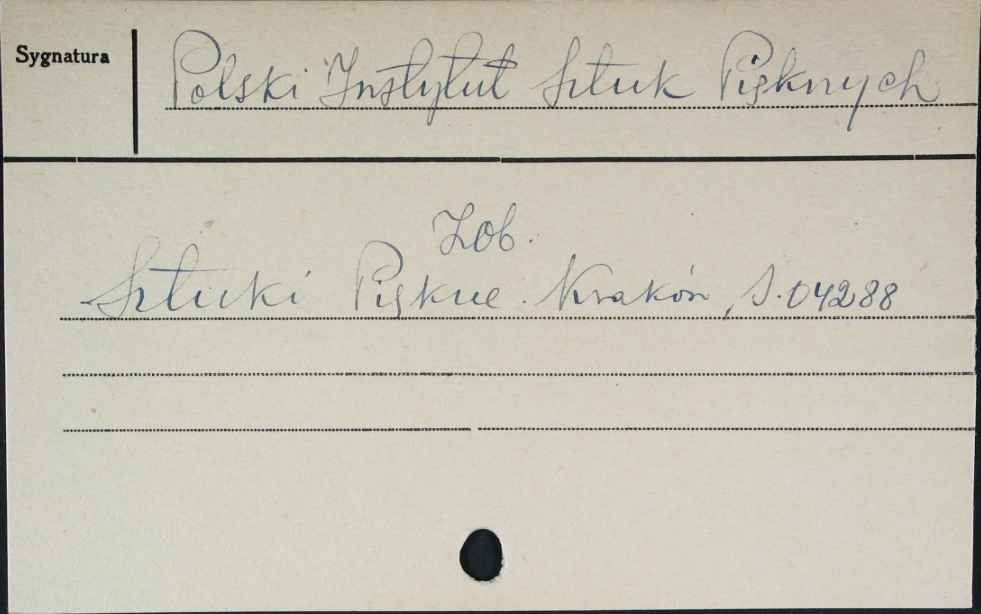 Sygnatura
Polski Instytut Sztuk Pięknych
Zob.
Sztuki Piękne. Kraków, S. 04288